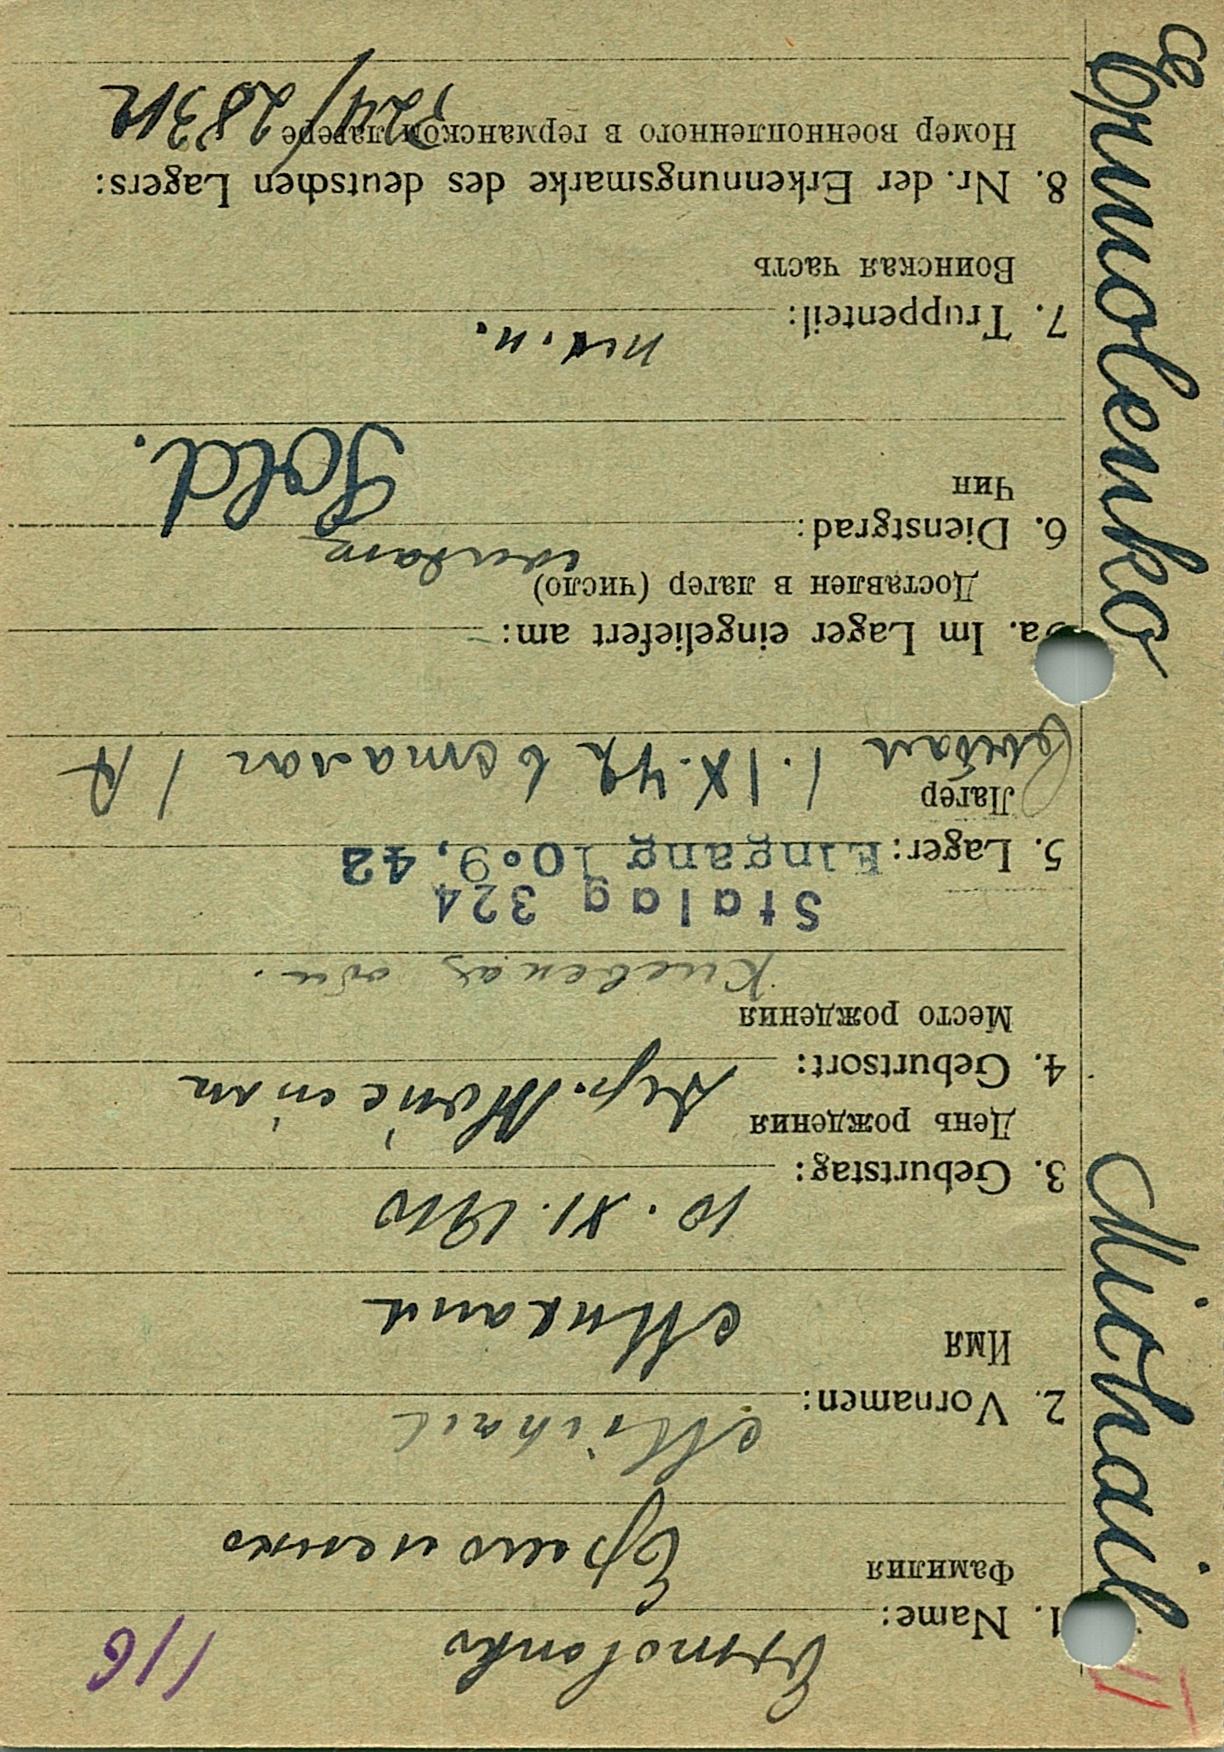 Ermolenko Michail
II
1/6
Ermolenko
1. Name:
Фамилия
Ермоленко
Michail
2. Vornamen:
Имя
Михаил
10. XI. 1910
3. Geburtstag:
День рождения
дер.
4. Geburtsort:
Место рождения
Киевская обл.
Stalag 324
5. Lager: Eingang 10.9.42
Лагер
1. IX. 42 в шталаг 1 A
a. Im Lager eingeliefert am:
Доставлен в лагер (число)
солдат
6. Dienstgrad: Sold.
Чин
7. Truppenteil:
Воинская часть
8. Nr. der Erkennungsmarke des deutschen Lagers:
Номер военнопленного в германском лагере
324/28312